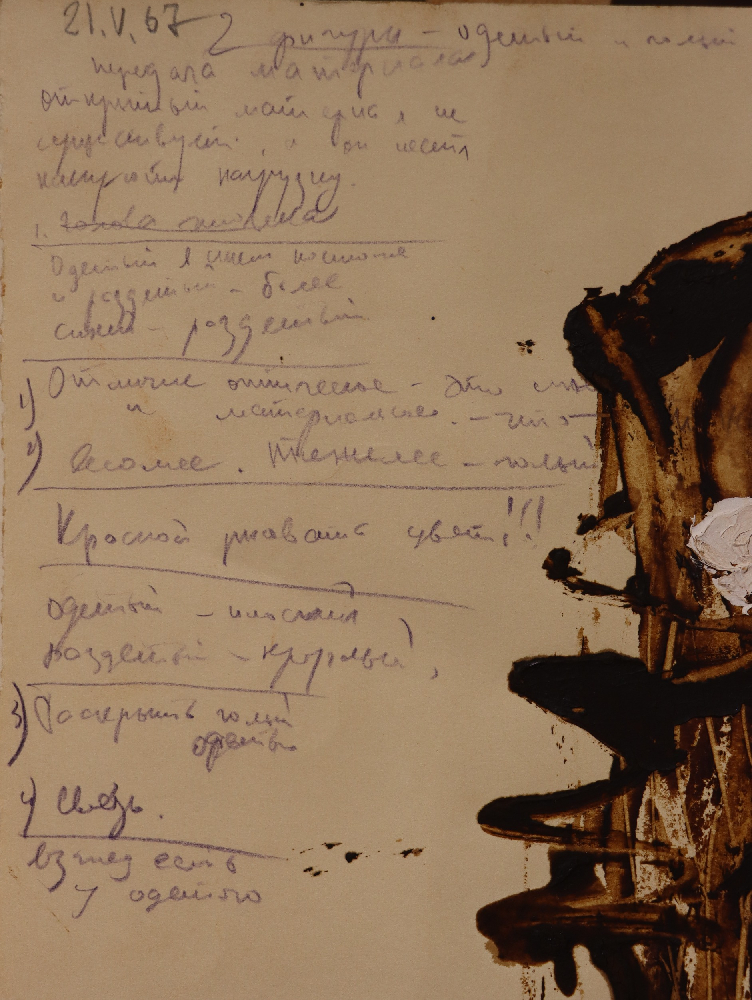 21.V.67 2 фигуры – одетый и голый
передача материала
открытый материал не
существует, а он несёт
какую-то нагрузку.
1. голова человека
Одетый в синем костюме
и раздетый – более
синий – раздетый
1) Отличие оптическое – это
и материальное. – что
2) Весомее. Тяжелее – голый
Красной ржавать цвет!!!
одетый – плоский
раздетый – круглый,
3) Раскрыть голый
одетый
4) Связь.
взгляд есть
у одетого